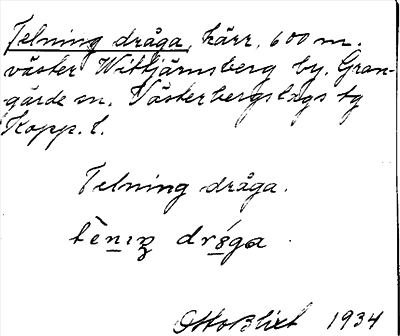 Telning dråga, kärr, 600 m.
väster Wittjärnsberg by. Gran-
gärde sn. Västerbergslags tg
Kopp. l.
Telning dråga.
Otto Blixt 1934